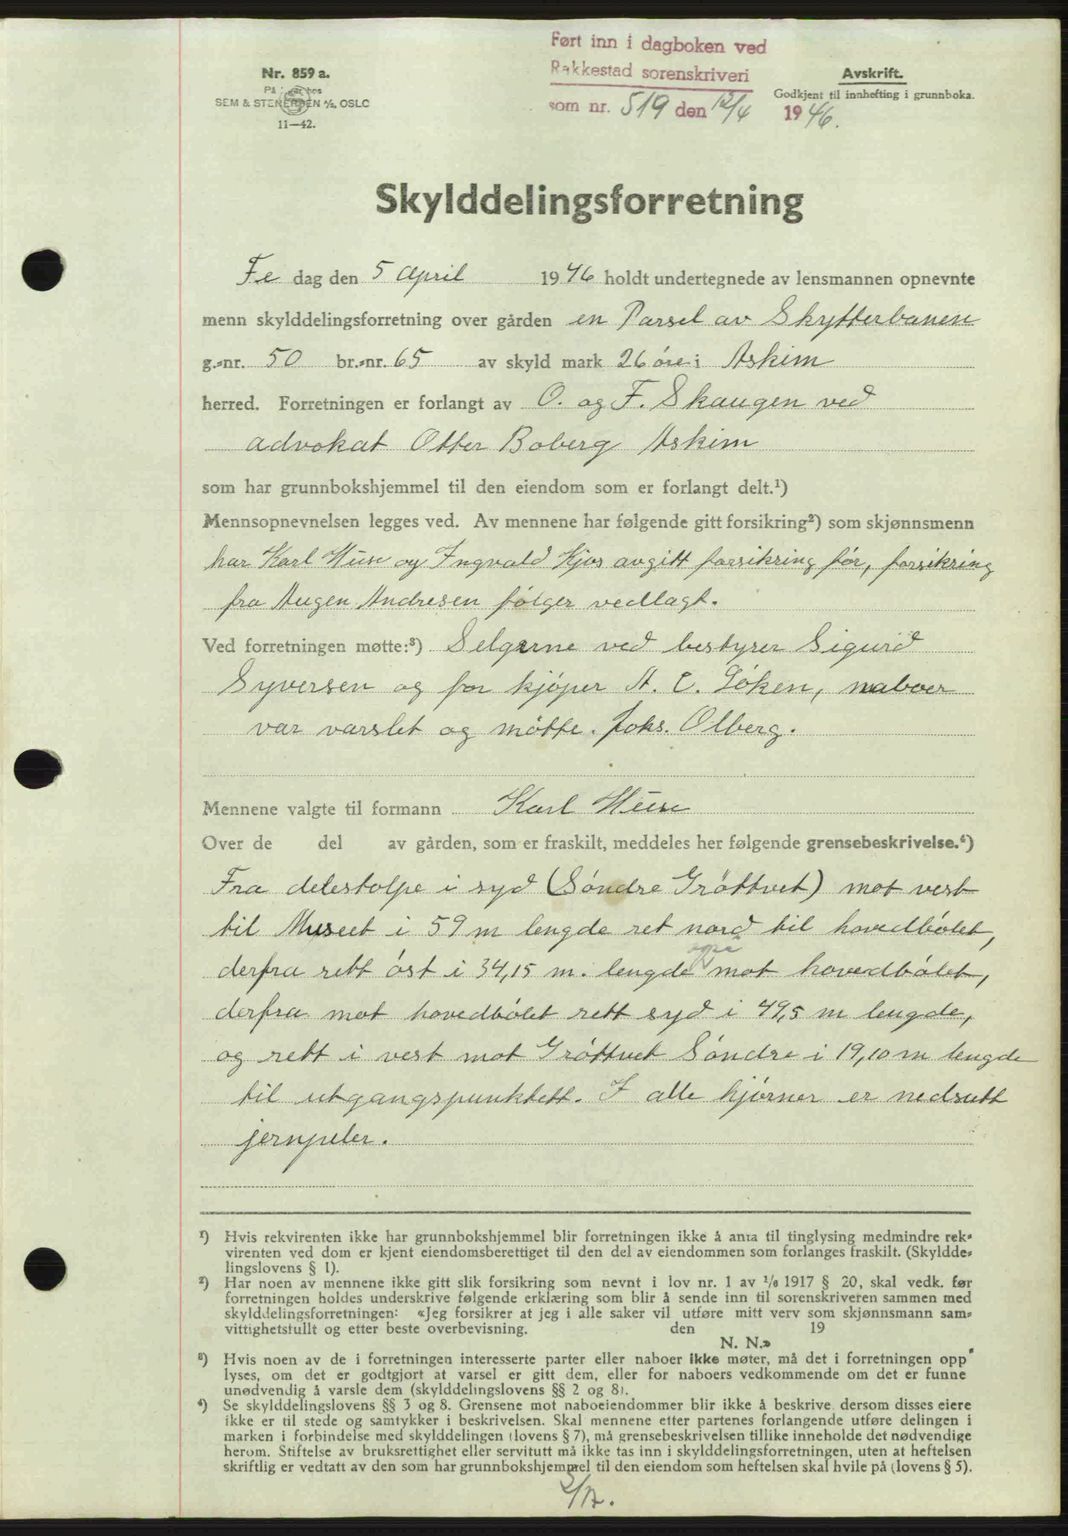 Nr. 859 a.
SEM & STENERSEN A/S, OSLO
11—42.
Ført inn i dagboken ved
Rakkestad sorenskriveri
som nr. 519 den 12/4 1946.
Avskrift.
Godkjent til innhefting i grunnboka.
Skylddelingsforretning
Fre dag den 5 April 1946 holdt undertegnede av lensmannen opnevnte
menn skylddelingsforretning over gården en Parsel av Skytterbanen
g.-nr. 50 br.-nr. 65 av skyld mark 26 øre i Askim
herred. Forretningen er forlangt av O. og F. Skaugen ved
advokat Otter Boberg Askim
som har grunnbokshjemmel til den eiendom som er forlangt delt.¹)
Mennsopnevnelsen legges ved. Av mennene har følgende gitt forsikring²) som skjønnsmenn
har Karl Huse og Ingvald Kjos avgitt forsikring før, forsikring
fra Augen Andresen følger vedlagt.
Ved forretningen møtte:³) Selgerne ved bestyrer Sigurd
Syversen og for kjøper A. C. Løken, naboer
var varslet og møtte. Johs. Olberg.
Mennene valgte til formann Karl Huse
Over de del av gården, som er fraskilt, meddeles her følgende grensebeskrivelse.⁴)
Fra delestolpe i syd (Søndre Grøttvet) mot vest
til Museet i 59 m lengde ret nord til hovedbølet,
derfra rett øst i 34,15 m. lengde også mot hovedbølet,
derfra mot hovedbølet rett syd i 49,5 m lengde,
og rett i vest mot Grøttvet Søndre i 19,10 m lengde
til utgangspunktett. I alle hjørner er nedsatt
jernpeler.
¹) Hvis rekvirenten ikke har grunnbokshjemmel blir forretningen ikke å anta til tinglysing medmindre rek-
virenten ved dom er kjent eiendomsberettiget til den del av eiendommen som forlanges fraskilt. (Skyldde-
lingslovens § 1).
²) Har noen av mennene ikke gitt slik forsikring som nevnt i lov nr. 1 av 1/6 1917 § 20, skal vedk. før
forretningen holdes underskrive følgende erklæring som blir å sende inn til sorenskriveren sammen med
skylddelingsforretningen: «Jeg forsikrer at jeg i alle saker vil utføre mitt verv som skjønnsmann sam-
vittighetsfullt og etter beste overbevisning. den 19
N. N.»
³) Hvis noen av de i forretningen interesserte parter eller naboer ikke møter, må det i forretningen opp
lyses, om det er godtgjort at varsel er gitt dem, eller for naboers vedkommende om det er funne
unødvendig å varsle dem (skylddelingslovens §§ 2 og 8).
⁴) Se skylddelingslovens §§ 3 og 8. Grensene mot naboeiendommer blir ikke å beskrive dersom disses eiere
ikke er til stede og samtykker i beskrivelsen. Skal mennene etter partenes forlangende utføre delingen i
marken i forbindelse med skylddelingen (lovens § 7), må grensebeskrivelsen tillike inneholde det nødvendige
herom. Stiftelse av bruksrettighet eller servitutt må ikke tas inn i skylddelingsforretningen, uten at heftelsen
skriftlig er vedtatt av den som har grunnbokshjemmel til den eiendom som heftelsen skal hvile på (lovens § 5).